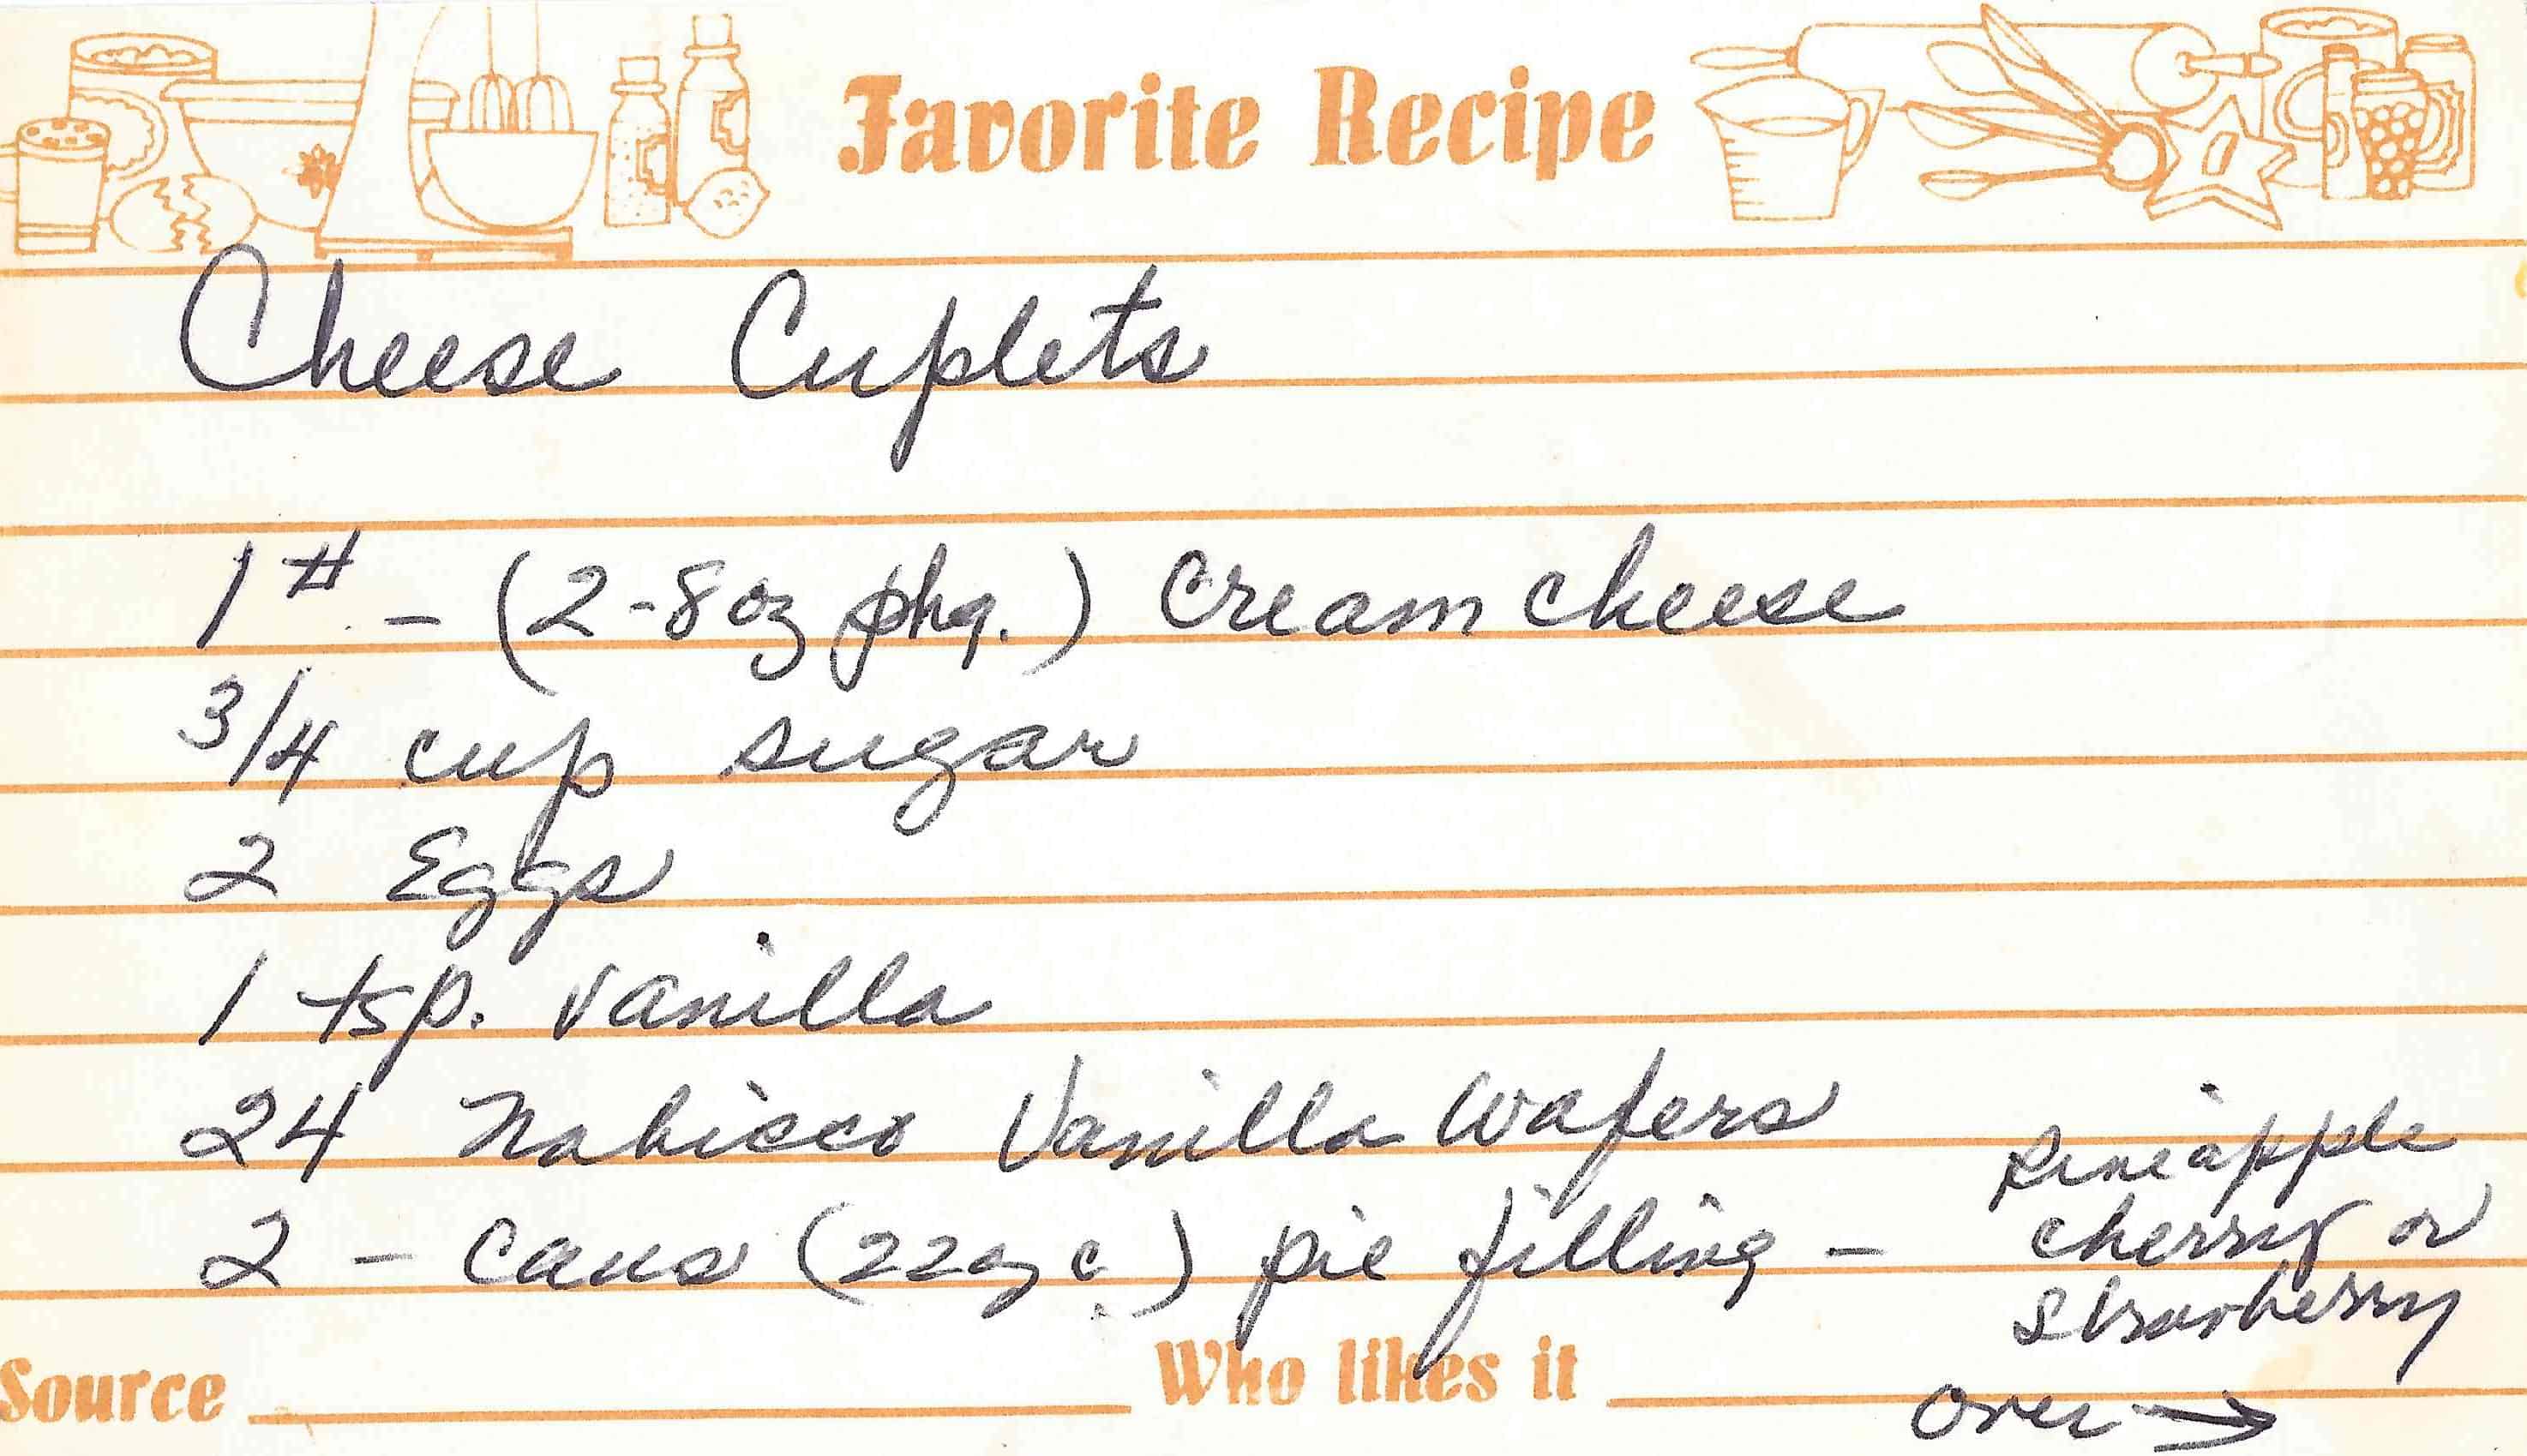 Favorite Recipe
Cheese Cuplets
1# - (2-8oz pkg.) Cream cheese
3/4 cup sugar
2 Eggs
1 tsp. vanilla
24 Nabisco Vanilla Wafers
2 - cans (22oz c.) pie filling - pineapple
cherry or
strawberry
Source Who likes it
Over →